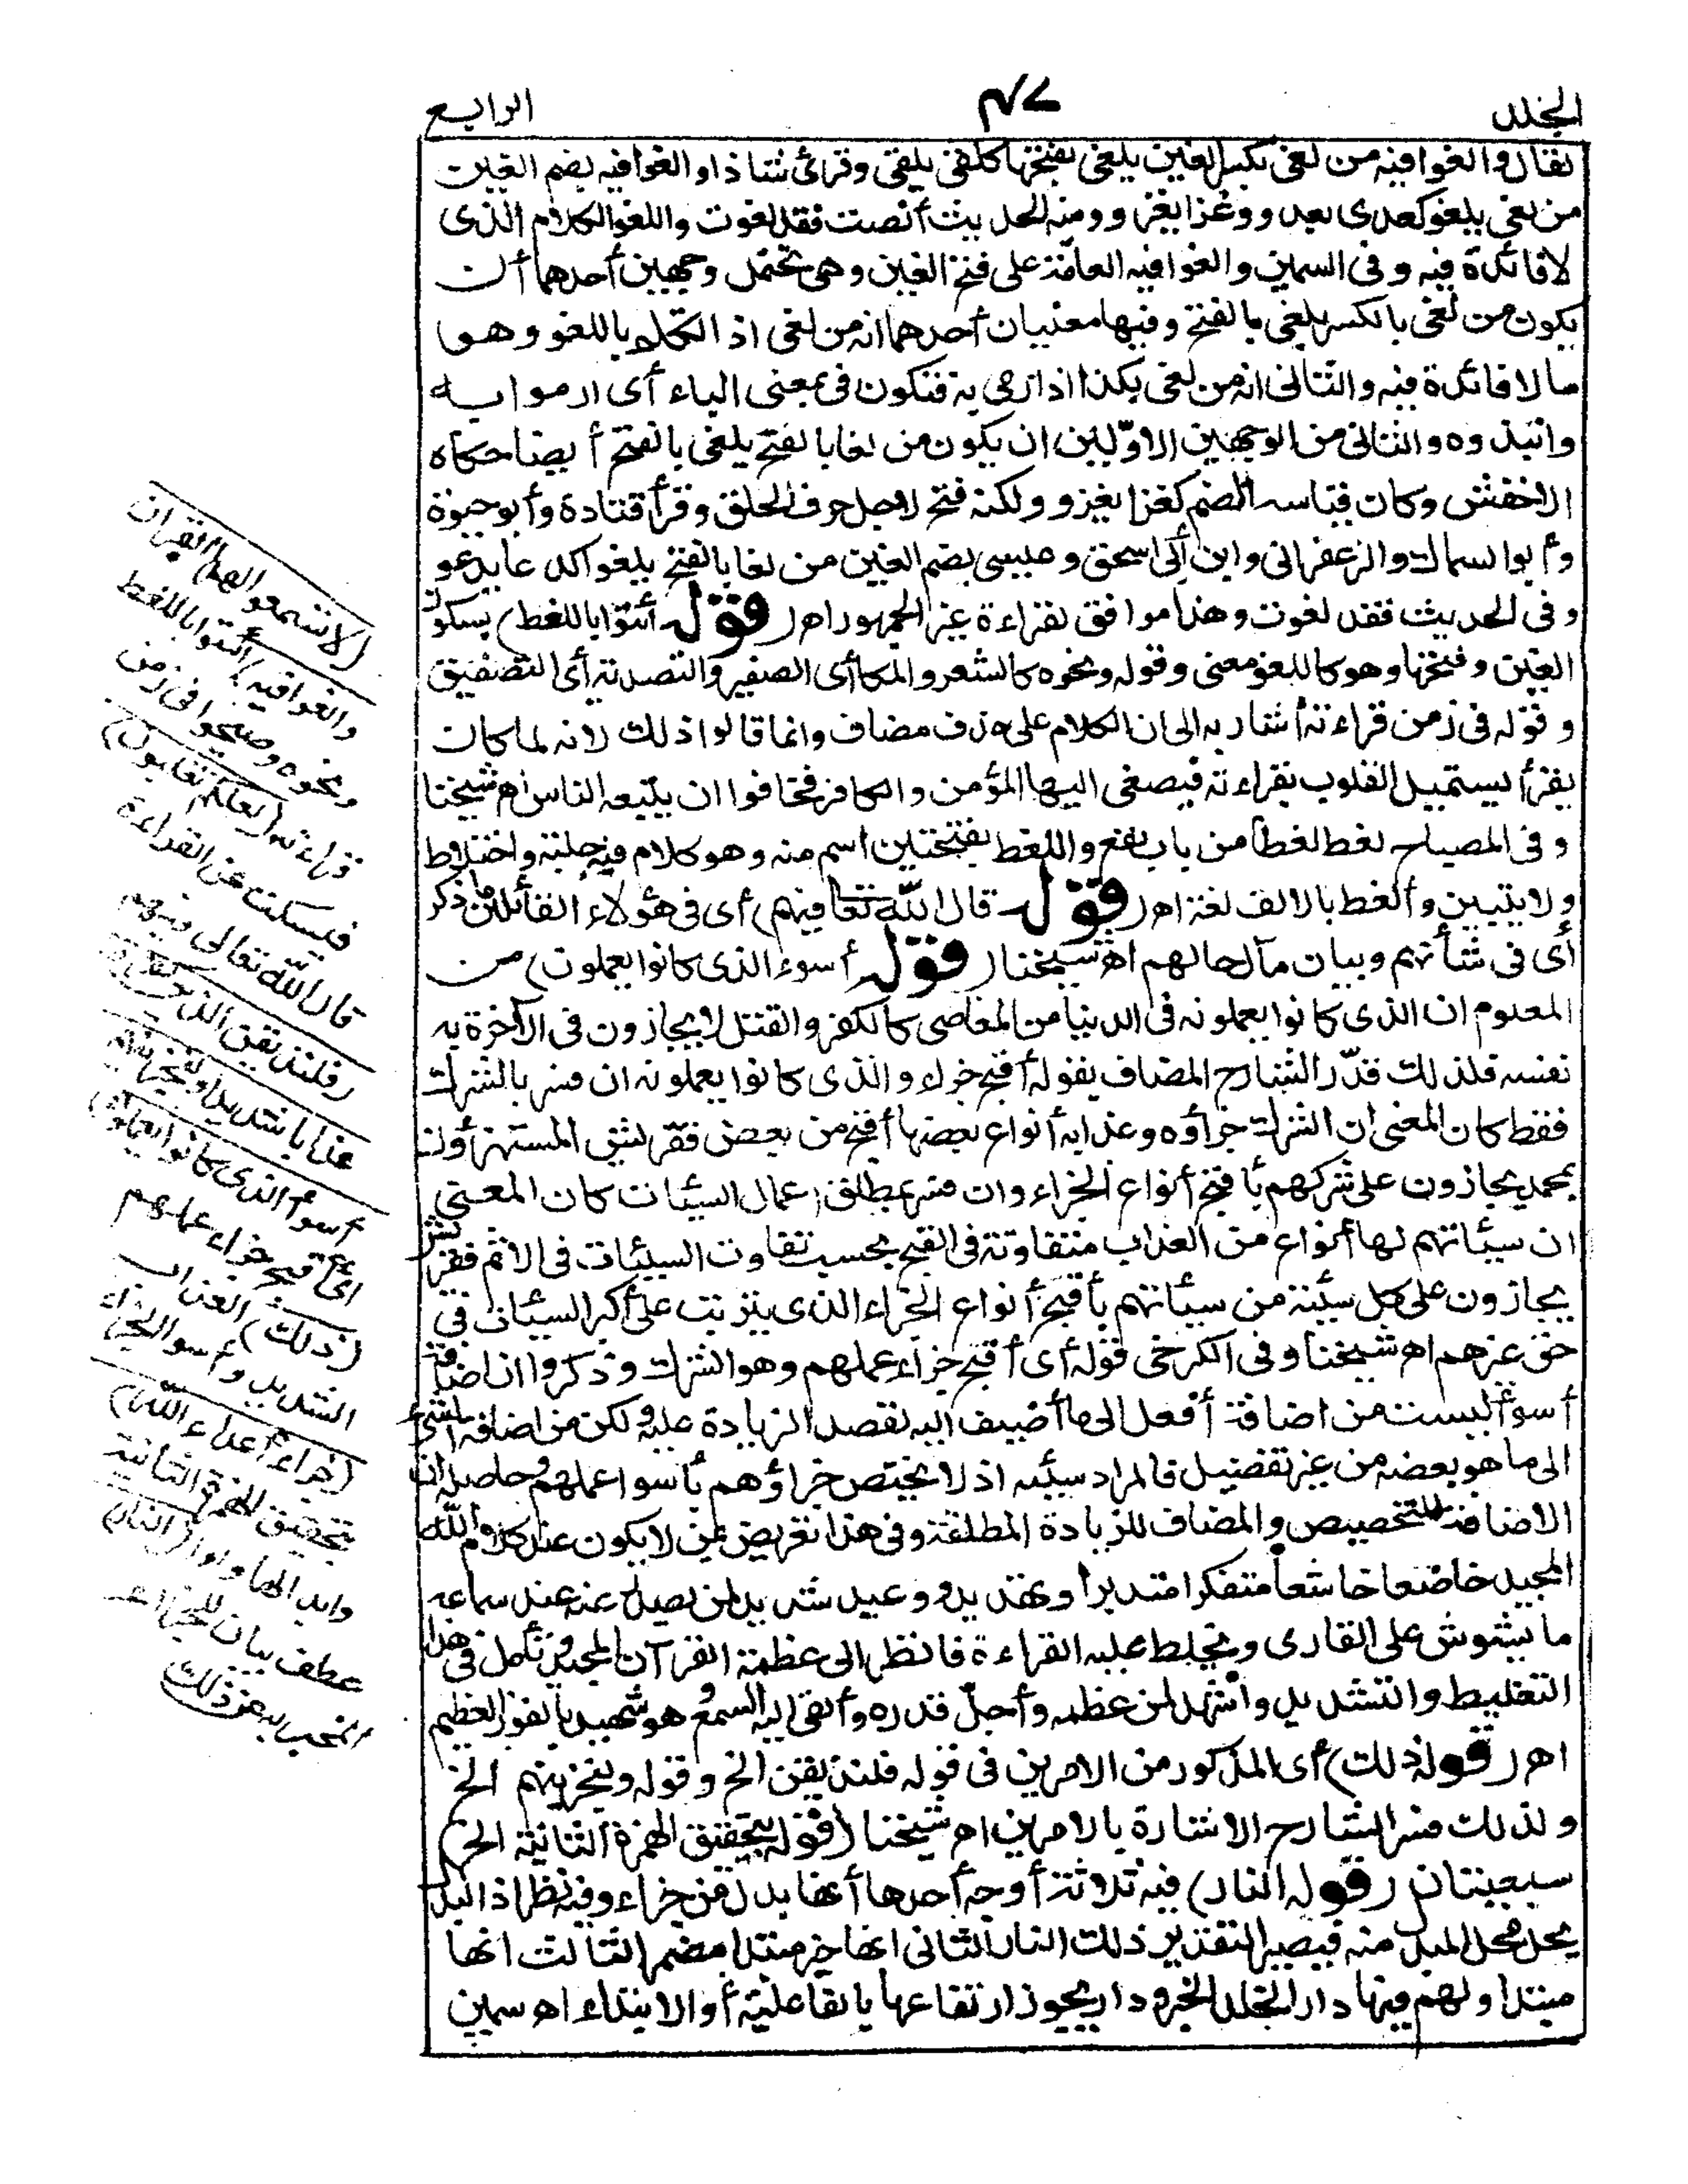 الجلد
٤٧
الرابع
يقال والغوا فيه من لغى بكسر الغين يلغى بفتحها كلقى يلقى وقرئ شاذا والغوا فيه بضم الغين
من لغى يلغو كعدى يعدو وغزا يغزو ومنه الحديث أنصت فقد لغوت واللغو الكلام الذى
لا فائدة فيه وفى السمين والغوا فيه العامّة على فتح الغين وهى تحتمل وجهين أحدهما أن
يكون من لغى بالكسر يلغى بالفتح وفيها معنيان أحدهما انه من لغى اذا تكلم باللغو وهو
ما لا فائدة فيه والثانى انه من لغى بكذا اذا رمى به فتكون فى بمعنى الباء أى ارموا به
وانبذوه والثانى من الوجهين الاوّلين ان يكون من لغا بالفتح يلغى بالفتح أيضا حكاه
الاخفش وكان قياسه الضم كغزا يغزو ولكنه فتح لاجل حرف الحلق وقرأ قتادة وأبو حيوة
وأبو السمال والزعفرانى وابن أبى اسحق وعيسى بضم الغين من لغا بالفتح يلغو كدعا يدعو
وفى الحديث فقد لغوت وهذا موافق لقراءة غير الجمهور اه (قوله أئتوا باللغط) بسكون
الغين وفتحها وهو كاللغو معنى وقوله ونحوه كالشعر والمكا أى الصفير والتصدية أى التصفيق
وقوله فى زمن قراءته أشار به الى ان الكلام على حذف مضاف وانما قالوا ذلك لانه لما كان
يقرأ يستميل القلوب بقراءته فيصغى اليها المؤمن والكافر فخافوا ان يتبعه الناس اه شيخنا
وفى المصباح لغط لغطا من باب نفع واللغط بفتحتين اسم منه وهو كلام فيه جلبة واختلاط
ولا يتبين وألغط بالالف لغة اه (قوله قال الله تعا فيهم) أى فى هؤلاء القائلين ما ذكر
أى فى شأنهم وبيان مآل حالهم اه شيخنا (قوله أسوء الذى كانوا يعملون) من
المعلوم ان الذى كانوا يعملونه فى الدنيا من المعاصى كالكفر والقتل لا يجازون فى الآخرة به
نفسه فلذلك قدّر الشارح المضاف بقوله أقبح جزاء والذى كانوا يعملونه ان فسر بالشرك
فقط كان المعنى ان الشرك جزاؤه وعذابه أنواع بعضها أقبح من بعض فقريش المستهزؤن
بمحمد يجازون على شركهم بأقبح أنواع الجزاء وان فسر بمطلق اعمال السيئات كان المعنى
ان سيئاتهم لها أنواع من العذاب متفاوتة فى القبح بحسب تفاوت السيئات فى الاثم فقريش
يجازون على كل سيئة من سيئاتهم بأقبح أنواع الجزاء الذى يترتب على أكبر السيئات فى
حق غيرهم اه شيخنا وفى الكرخى قوله أى أقبح جزاء عملهم وهو الشرك وذكروا ان اضافة
أسوأ ليست من اضافة أفعل الى ما أضيف اليه لقصد الزيادة عليه ولكن من اضافة الشئ
الى ما هو بعضه من غير تفضيل فالمراد سيئه اذ لا يختص جزاؤهم بأسوا عملهم وحاصله ان
الاضافة للتخصيص والمضاف للزيادة المطلقة وفى هذا تعريض بمن لا يكون عند كلام الله
المجيد خاضعا خاشعا متفكرا متدبرا وتهديد ووعيد شديد لمن يصدر عنه عند سماعه
ما يشوش على القارى ويخلط عليه القراءة فانظر الى عظمة القرآن المجيد وتأمل فى هذا
التغليظ والتشديد واشهد لمن عظمه وأجلّ قدره وألقى اليه السمع وهو شهيد بالفوز العظيم
اه (قوله ذلك) أى المذكور من الامرين فى قوله فلنذيقن الخ وقوله ولنجزينهم الخ
ولذلك فسر الشارح الاشارة بالامرين اه شيخنا (قوله بتحقيق الهمزة الثانية الخ)
سبعيتان (قوله النار) فيه ثلاثة أوجه أحدها أنها بدل من جزاء وفيه نظر اذ البدل
يحل محل المبدل منه فيصير التقدير ذلك النار الثانى انها خبر مبتدا مضمر الثالث انها
مبتدا ولهم فيها دار الخلد الخبر ودار يجوز ارتفاعها بالفاعلية أو الابتداء اه سمين
(لا تسمعوا لهذا القران
والغوا فيه) أئتوا باللغط
ونحوه وصيحوا فى زمن
قراءته (لعلكم تغلبون)
فيسكت عن القراءة
قال الله تعالى فيهم
(فلنذيقن الذين كفروا
عذابا شديدا ولنجزينهم
أسوأ الذى كانوا يعملون)
اى أقبح جزاء عملهم
(ذلك) العذاب
الشديد وأسوا الجزاء
(جزاء أعداء الله)
بتحقيق الهمزة الثانية
وابدالها واوا (النار)
عطف بيان للجزاء
المخبر به عن ذلك